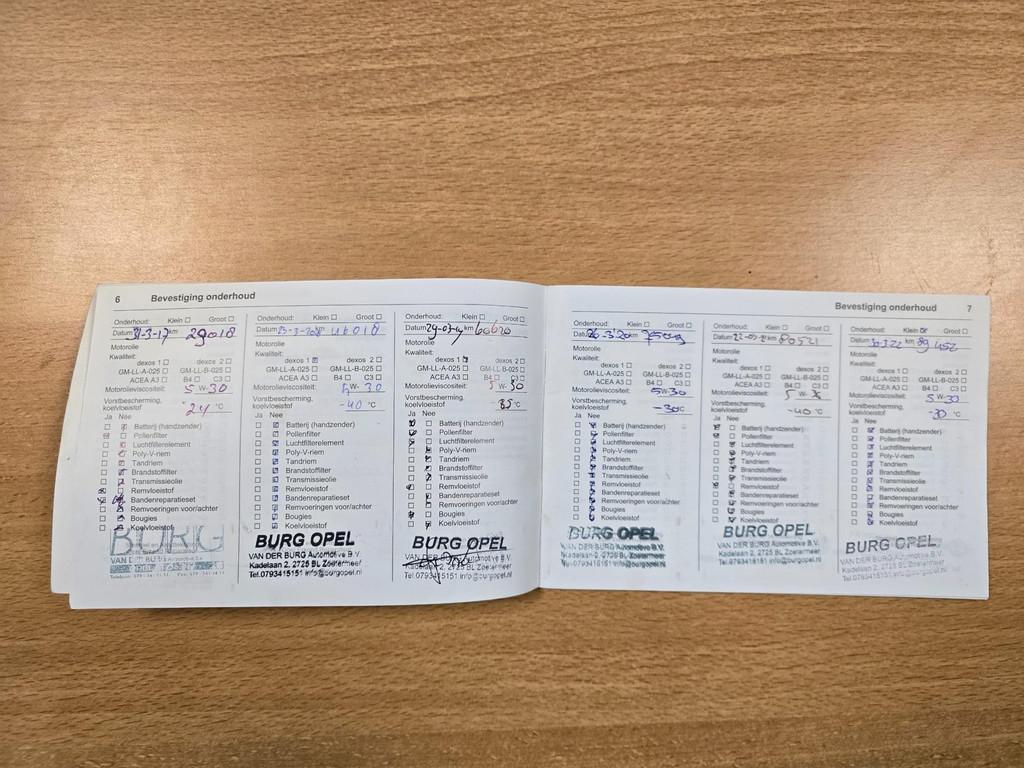 6 Bevestiging onderhoud
Onderhoud: Klein ☐ Groot ☐
Datum 31-3-17 km 29018
Motorolie
Kwaliteit:
dexos 1 ☐ dexos 2 ☐
GM-LL-A-025 ☐ GM-LL-B-025 ☐
ACEA A3 ☐ B4 ☐ C3 ☐
Motorolieviscositeit: 5 W- 30
Vorstbescherming,
koelvloeistof °C
Ja Nee
Batterij (handzender)
Pollenfilter
Luchtfilterelement
Poly-V-riem
Tandriem
Brandstoffilter
Transmissieolie
Remvloeistof
Bandenreparatieset
Remvoeringen voor/achter
Bougies
Koelvloeistof
BURG
Onderhoud: Klein ☐ Groot ☐
Datum km
Motorolie
Kwaliteit:
dexos 1 ☑ dexos 2 ☐
GM-LL-A-025 ☐ GM-LL-B-025 ☐
ACEA A3 ☐ B4 ☐ C3 ☐
Motorolieviscositeit: W- 30
Vorstbescherming,
koelvloeistof -40 °C
Ja Nee
Batterij (handzender)
Pollenfilter
Luchtfilterelement
Poly-V-riem
Tandriem
Brandstoffilter
Transmissieolie
Remvloeistof
Bandenreparatieset
Remvoeringen voor/achter
Bougies
Koelvloeistof
BURG OPEL
VAN DER BURG Automotive B.V.
Kadelaan 2, 2725 BL Zoetermeer
Tel.0793415151 info@burgopel.nl
Onderhoud: Klein ☐ Groot ☐
Datum km 60620
Motorolie
Kwaliteit:
dexos 1 ☑ dexos 2 ☐
GM-LL-A-025 ☐ GM-LL-B-025 ☐
ACEA A3 ☐ B4 ☐ C3 ☐
Motorolieviscositeit: 5 W- 30
Vorstbescherming,
koelvloeistof °C
Ja Nee
Batterij (handzender)
Pollenfilter
Luchtfilterelement
Poly-V-riem
Tandriem
Brandstoffilter
Transmissieolie
Remvloeistof
Bandenreparatieset
Remvoeringen voor/achter
Bougies
Koelvloeistof
BURG OPEL
VAN DER BURG Automotive B.V.
Kadelaan 2, 2725 BL Zoetermeer
Tel.0793415151 info@burgopel.nl
Bevestiging onderhoud 7
Onderhoud: Klein ☐ Groot ☐
Datum 26-3-'20 km
Motorolie
Kwaliteit:
dexos 1 ☐ dexos 2 ☐
GM-LL-A-025 ☐ GM-LL-B-025 ☐
ACEA A3 ☐ B4 ☐ C3 ☐
Motorolieviscositeit: 5 W- 30
Vorstbescherming,
koelvloeistof -30 °C
Ja Nee
Batterij (handzender)
Pollenfilter
Luchtfilterelement
Poly-V-riem
Tandriem
Brandstoffilter
Transmissieolie
Remvloeistof
Bandenreparatieset
Remvoeringen voor/achter
Bougies
Koelvloeistof
BURG OPEL
VAN DER BURG Automotive B.V.
Kadelaan 2, 2725 BL Zoetermeer
Tel.0793415151 info@burgopel.nl
Onderhoud: Klein ☐ Groot ☐
Datum km 80521
Motorolie
Kwaliteit:
dexos 1 ☐ dexos 2 ☐
GM-LL-A-025 ☐ GM-LL-B-025 ☐
ACEA A3 ☐ B4 ☐ C3 ☐
Motorolieviscositeit: 5 W-
Vorstbescherming,
koelvloeistof -40 °C
Ja Nee
Batterij (handzender)
Pollenfilter
Luchtfilterelement
Poly-V-riem
Tandriem
Brandstoffilter
Transmissieolie
Remvloeistof
Bandenreparatieset
Remvoeringen voor/achter
Bougies
Koelvloeistof
BURG OPEL
VAN DER BURG Automotive B.V.
Kadelaan 2, 2725 BL Zoetermeer
Tel.0793415151 info@burgopel.nl
Onderhoud: Klein ☑ Groot ☐
Datum 30-3-22 km 89 452
Motorolie
Kwaliteit:
dexos 1 ☐ dexos 2 ☐
GM-LL-A-025 ☐ GM-LL-B-025 ☐
ACEA A3 ☐ B4 ☐ C3 ☐
Motorolieviscositeit: 5 W- 30
Vorstbescherming,
koelvloeistof -30 °C
Ja Nee
Batterij (handzender)
Pollenfilter
Luchtfilterelement
Poly-V-riem
Tandriem
Brandstoffilter
Transmissieolie
Remvloeistof
Bandenreparatieset
Remvoeringen voor/achter
Bougies
Koelvloeistof
BURG OPEL
VAN DER BURG Automotive B.V.
Kadelaan 2, 2725 BL Zoetermeer
Tel.0793415151 info@burgopel.nl